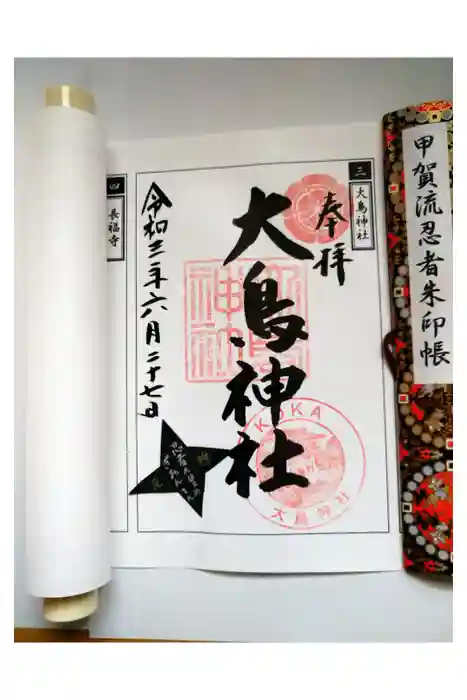 甲賀流忍者朱印帳
三
大鳥神社
奉拝
大鳥神社
令和三年六月二十七日
KOKA
大鳥神社
四
長福寺